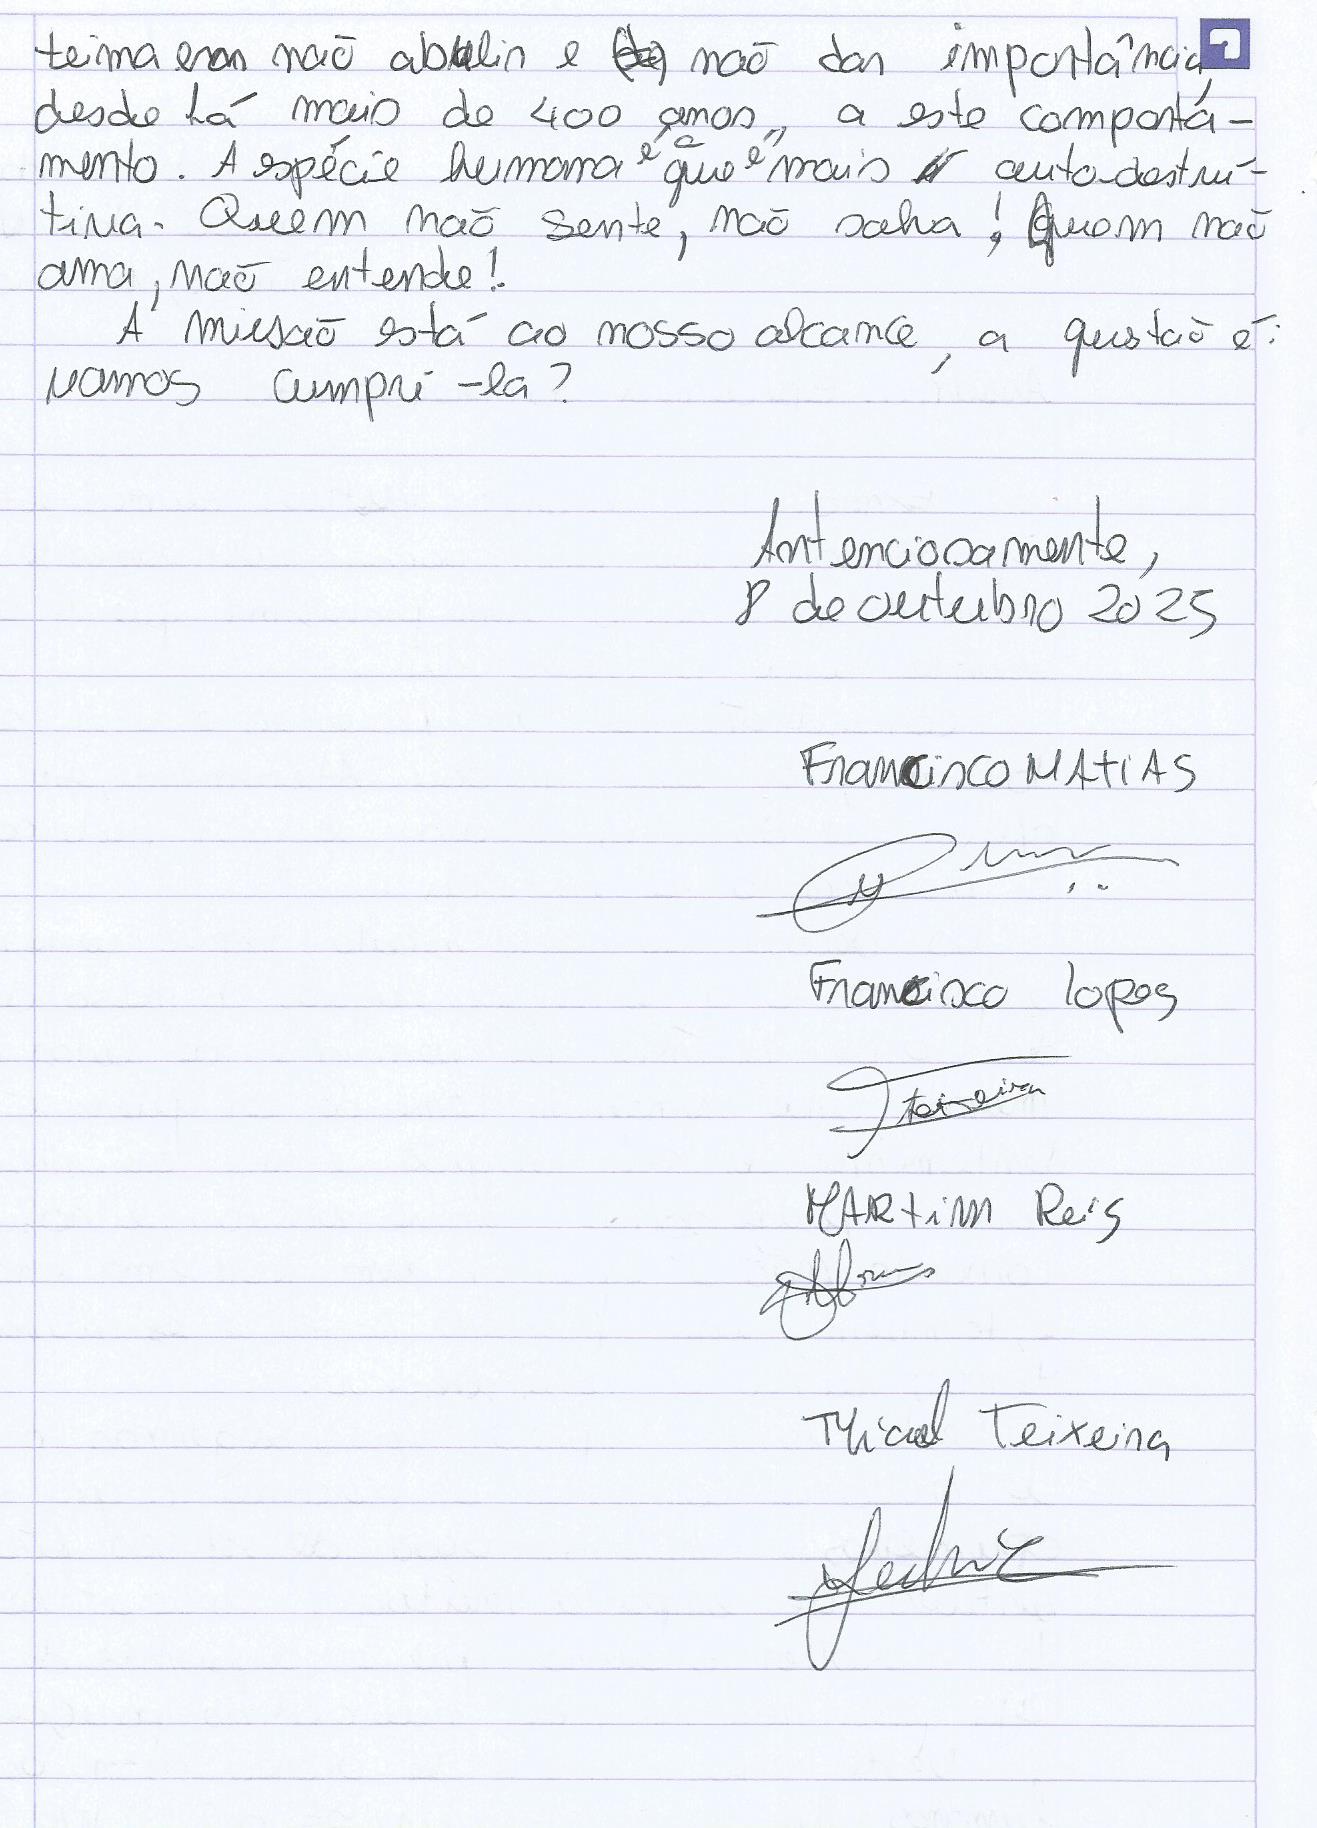 teima em não abulir e não dar importância,
desde há mais de 400 anos, a este comportá-
mento. A espécie humana é a que é mais auto-destru-
tiva. Quem não sente, não salva! Quem não
ama, não entende!
A missão está ao nosso alcance, a questão é:
vamos cumpri-la?
Antenciosamente,
8 de outubro 2025
Francisco MAtiAS
Francisco lopes
Teixeira
MARtim Reis
Teixeira